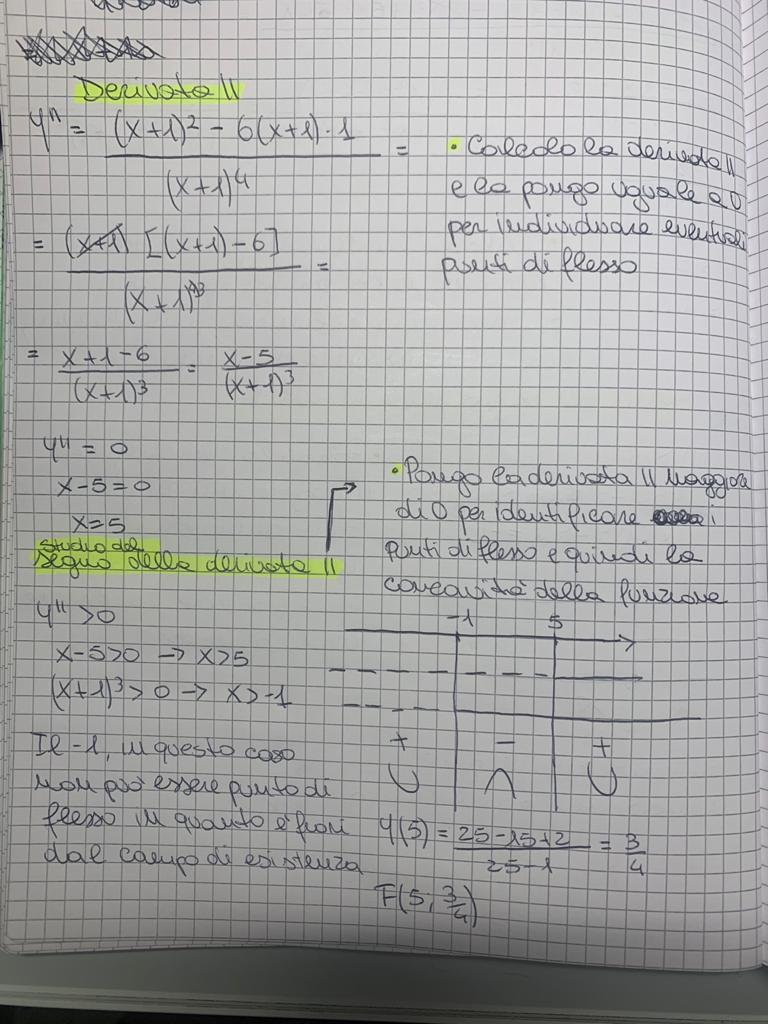 Derivata II
y" = (x+1)² - 6(x+1)·1 / (x+1)⁴ =
• Calcolo la derivata II
e la pongo uguale a 0
per individuare eventuali
punti di flesso
= (x+1) [(x+1)-6] / (x+1)⁴³ =
= x+1-6 / (x+1)³ = x-5 / (x+1)³
y" = 0
x-5=0
x=5
• Pongo la derivata II maggiore
di 0 per identificare i
punti di flesso e quindi la
concavità della funzione
studio del
segno della derivata II
y">0
x-5>0 → x>5
(x+1)³>0 → x>-1
-1 5
+ - +
Il -1, in questo caso
non può essere punto di
flesso in quanto è fuori
dal campo di esistenza
y(5) = 25-15+2 / 25-1 = 3/4
F(5; 3/4)